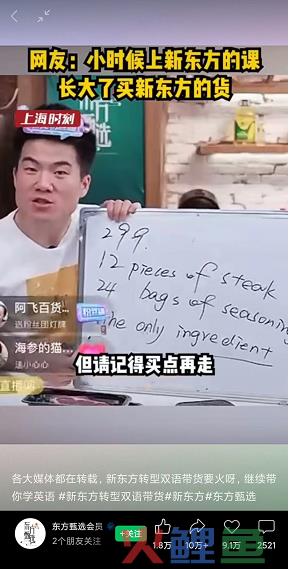 网友：小时候上新东方的课
长大了买新东方的货
上海时刻
东方甄选
299.
12 pieces of steak
24 bags of seasoning
The only ingredient
阿飞百货
送粉丝团灯牌
海参的猫
送小心心
但请记得买点再走
各大媒体都在转载，新东方转型双语带货要火呀，继续带
你学英语 #新东方转型双语带货#新东方#东方甄选
东方甄选会员
+关注
2个朋友关注
1.8万
10万+
9.1万
2521
火鲤鱼